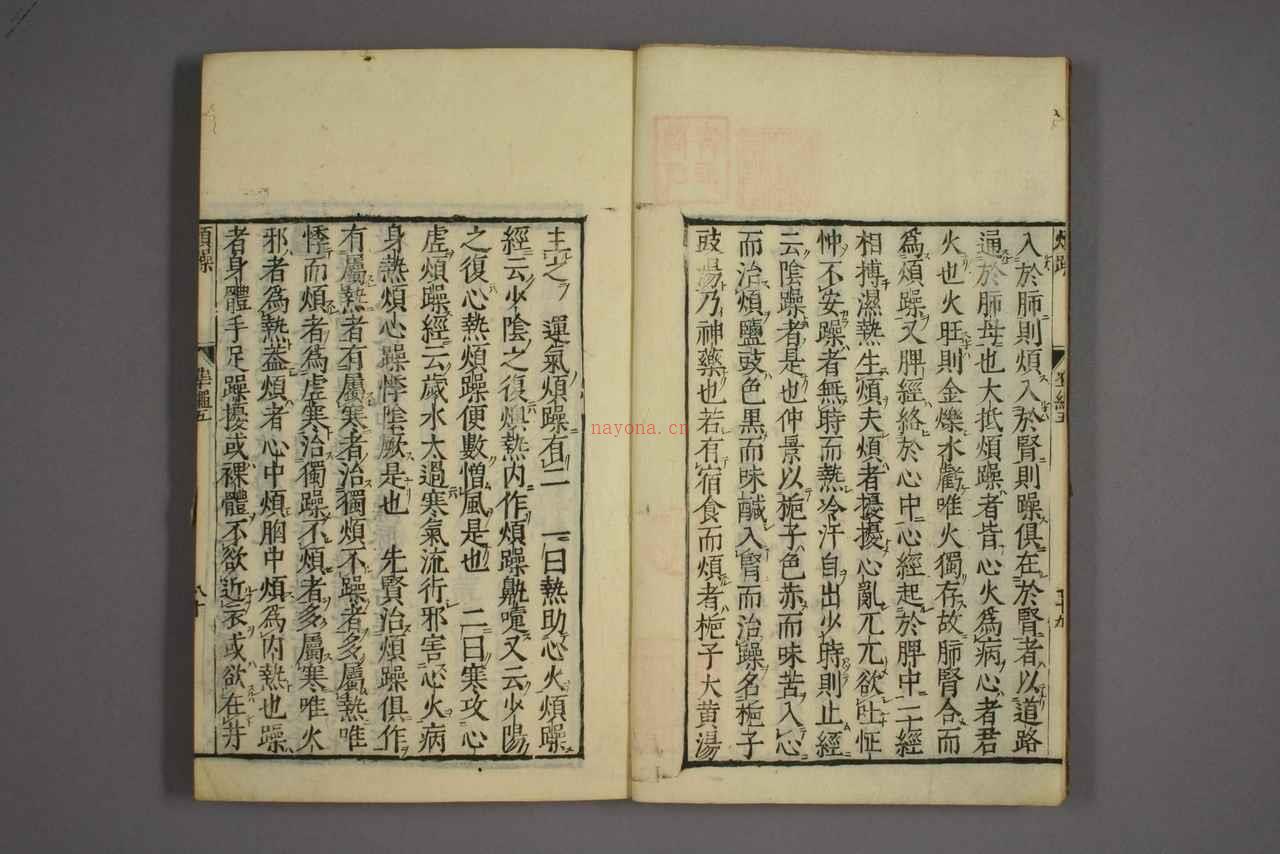 入於肺則煩入於腎則躁俱在於腎者以道路
通於肺母也大抵煩躁者皆心火爲病心者君
火也火旺則金爍水虧唯火獨存故肺腎合而
爲煩躁又脾經絡於心中心經起於脾中二經
相搏濕熱生煩夫煩者擾擾心亂兀兀欲吐怔
忡不安躁者無時而熱冷汗自出少時則止經
云陰躁者是也仲景以梔子色赤而味苦入心
而治煩鹽豉色黒而味鹹入腎而治躁名梔子
豉湯乃神藥也若有宿食而煩者梔子大黄湯
主之　運氣煩躁有二　一曰熱助心火煩躁
經云少陰之復燠熱内作煩躁鼽嚏又云少陽
之復心熱煩躁便數憎風是也　二曰寒攻心
虚煩躁經云歲水太過寒氣流行邪害心火病
身熱煩心躁悸陰厥是也　先賢治煩躁俱作
有屬熱者有屬寒者治獨煩不躁者多屬熱唯
悸而煩者爲虚寒治獨躁不煩者多屬寒唯火
邪者爲熱蓋煩者心中煩胸中煩爲内熱也躁
者身體手足躁擾或裸體不欲近衣或欲在井
準繩五
八十
nayona.cn